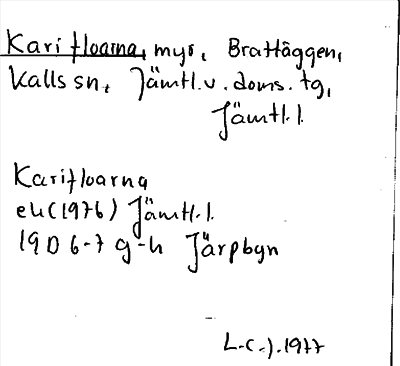 Karifloarna, myr, Brattäggen,
Kalls sn, Jämtl.v. doms. tg,
Jämtl.l.
Karifloarna
ek (1976) Jämtl.l.
19D 6-7 g-h Järpbyn
L.C.J. 1977